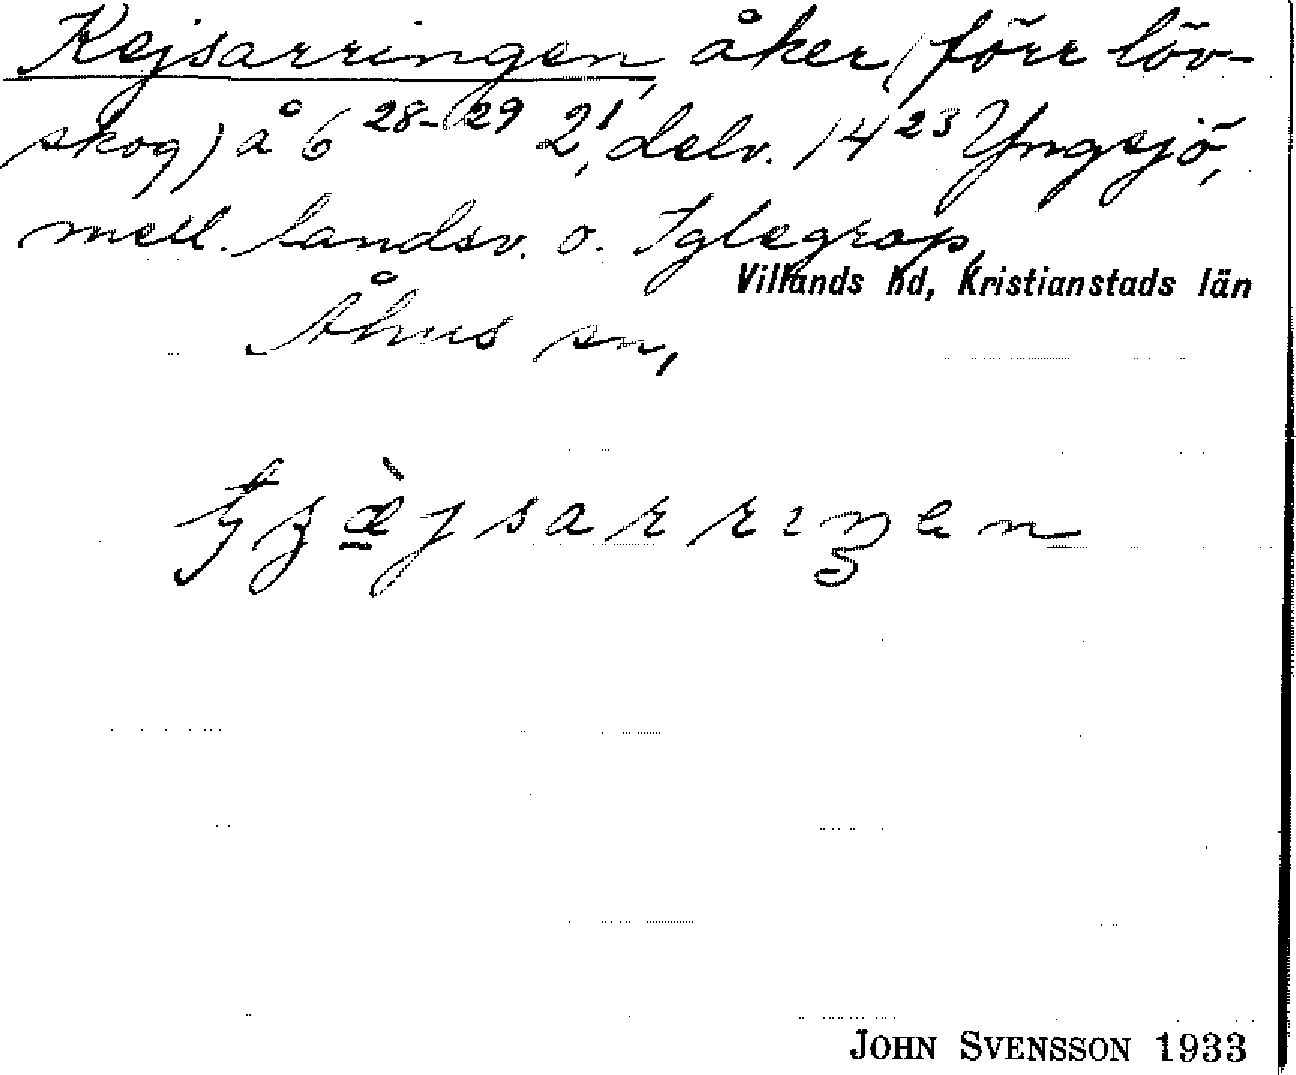 Kejsarringen, åker (förr löv-
skog) å 6 28-29 2, delv. 14 23 Yngsjö,
mell. landsv. o. Iglegrop,
Villands hd, Kristianstads län
Åhus sn,
JOHN SVENSSON 1933